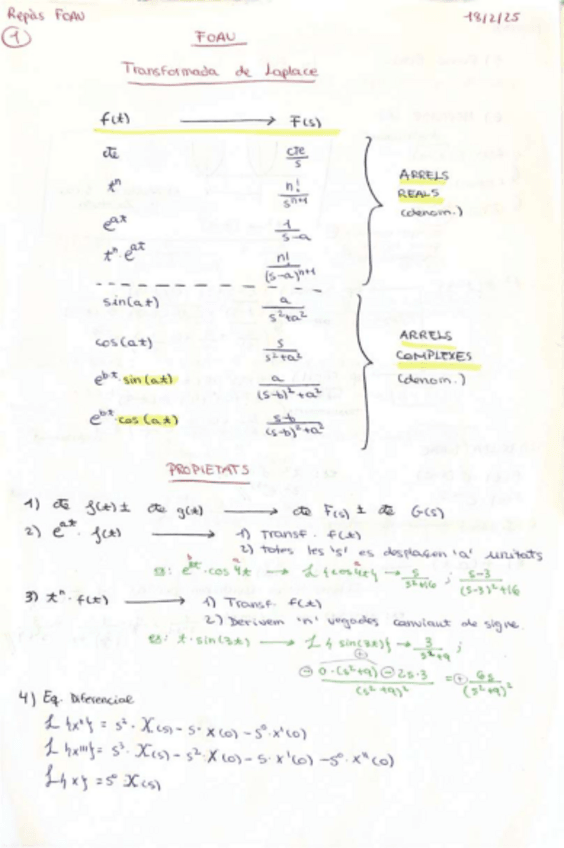 Repàs FOAU 18/2/25
1
FOAU
Transformada de Laplace
f(t) → F(s)
cte cte/s
tⁿ n!/sⁿ⁺¹
eᵃᵗ 1/(s-a)
tⁿ·eᵃᵗ n!/(s-a)ⁿ⁺¹
ARRELS
REALS
(denom.)
sin(at) a/(s²+a²)
cos(at) s/(s²+a²)
eᵇᵗ·sin(at) a/((s-b)²+a²)
eᵇᵗ·cos(at) (s-b)/((s-b)²+a²)
ARRELS
COMPLEXES
(denom.)
PROPIETATS
1) cte f(t) ± cte g(t) → cte F(s) ± cte G(s)
2) eᵃᵗ · f(t) → 1) Transf. f(t)
2) totes les 's' es desplacen 'a' unitats
ex: · cos 4t → L{cos4t} → s/(s²+16) ; (s-3)/((s-3)²+16)
3) tⁿ · f(t) → 1) Transf. f(t)
2) Derivem 'n' vegades canviant de signe.
ex: t · sin(3t) → L{sin(3t)} → 3/(s²+9) ;
⊖ (0·(s²+9) ⊖ 2s·3)/(s²+9)² = ⊕ 6s/(s²+9)²
4) Eq. Diferencial
L{x''} = s² · X(s) - s · x(0) - s⁰ · x'(0)
L{x'''} = s³ · X(s) - s² · x(0) - s · x'(0) - s⁰ · x''(0)
L{x} = s⁰ X(s)